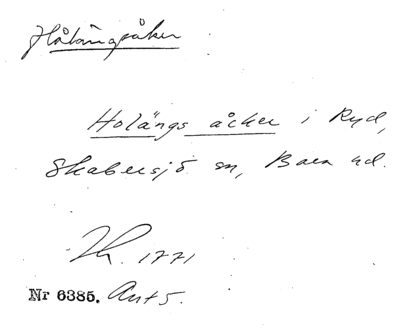 Hålängsåker
Holängs åcker i Ryd,
Skabersjö sn, Bara hd.
1771
Nr 6385. Ant 5.